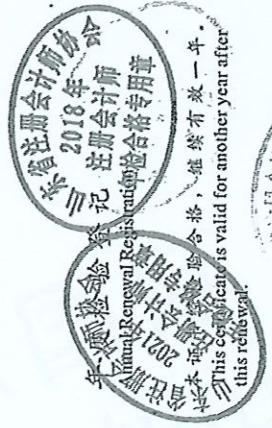 年度检验登记
Annual Renewal Registration
本证书经检验合格，继续有效一年。
This certificate is valid for another year after
this renewal.
山东省注册会计师协会
2018年
注册会计师
年检合格专用章
2021年
注册会计师